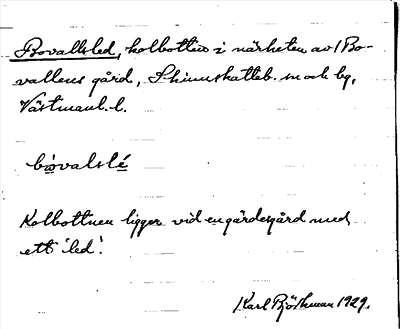 Bovallsled, kolbotten i närheten av Bo-
vallens gård, Skinnskatteb. sn och bg,
Västmanl. l.
bòvalslé
Kolbottnen ligger vid en gärdesgård med
ett 'led'.
Karl Björkman 1929.